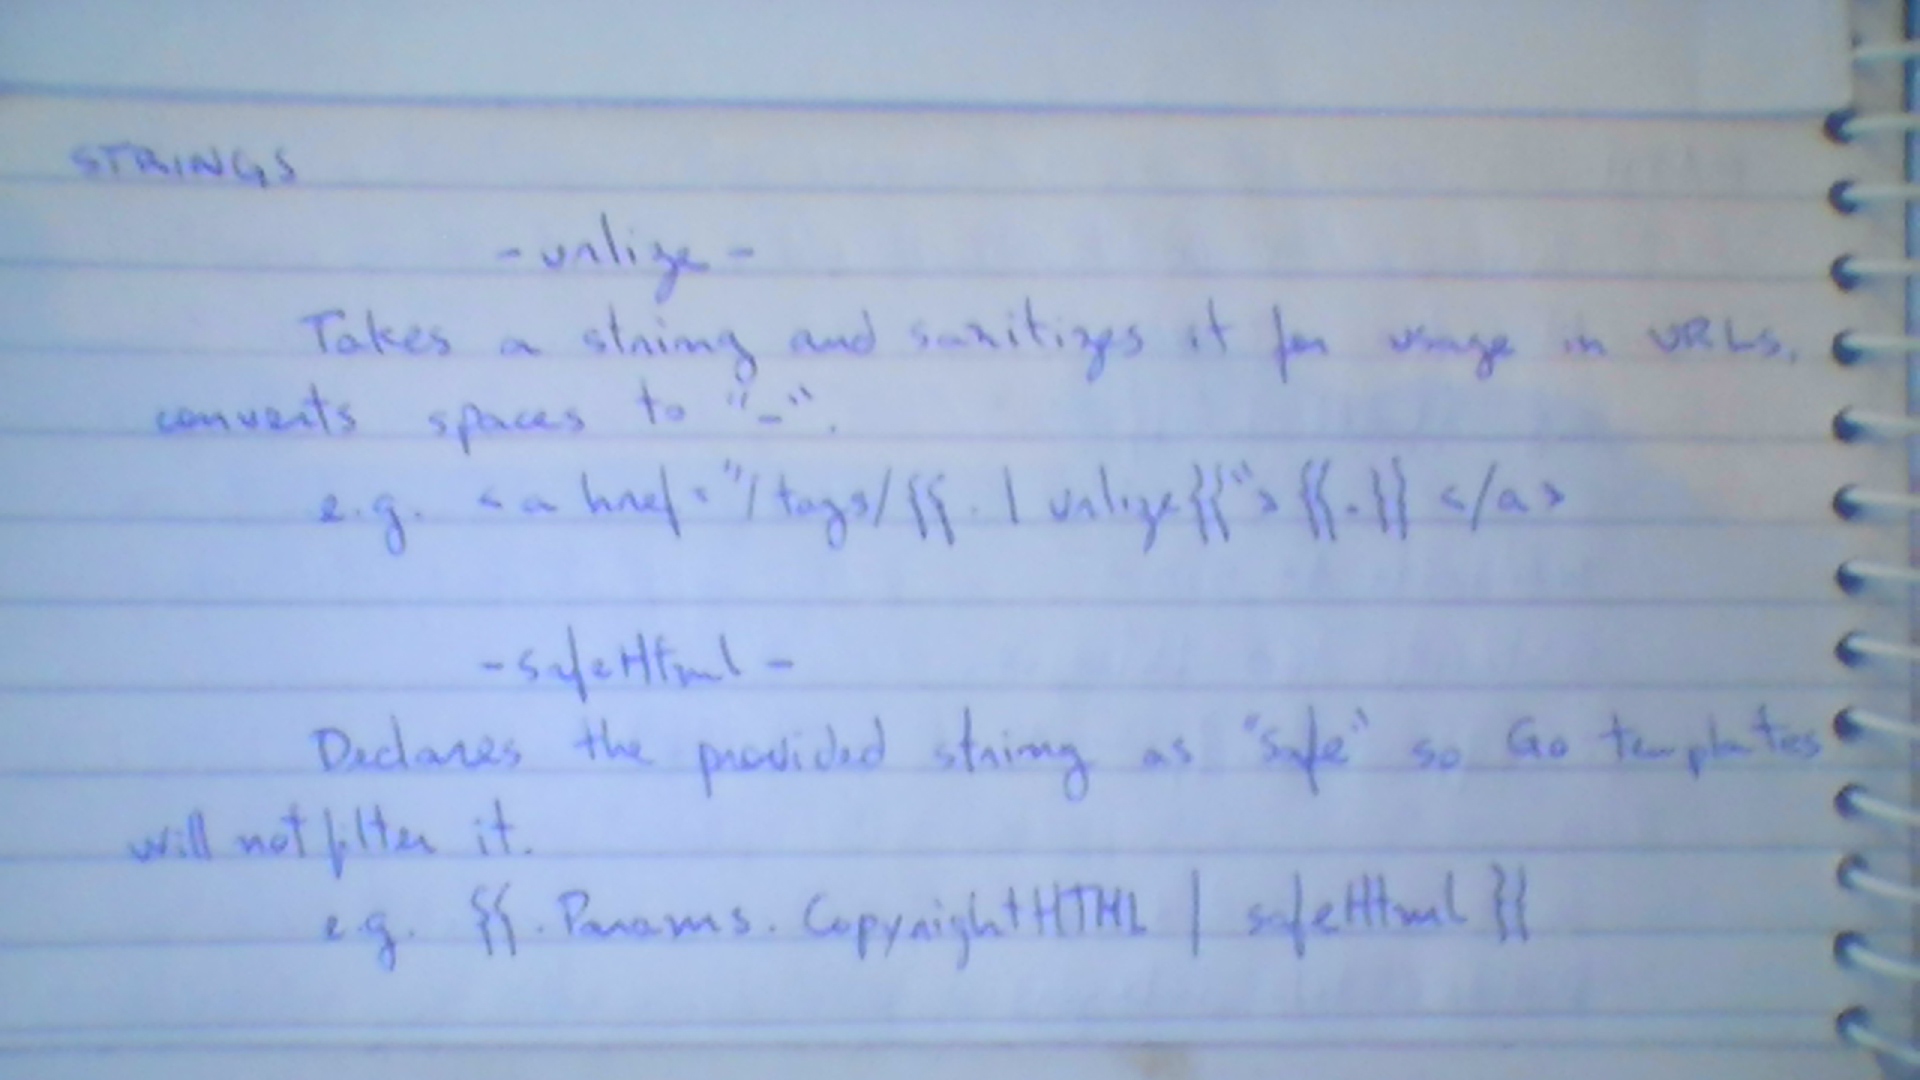 STRINGS
- urlize -
Takes a string and sanitizes it for usage in URLs,
converts spaces to "-".
e.g. <a href="/tags/{{ . | urlize}}"> {{.}} </a>
- safeHtml -
Declares the provided string as "safe" so Go templates
will not filter it.
e.g. {{ .Params.CopyrightHTML | safeHtml }}